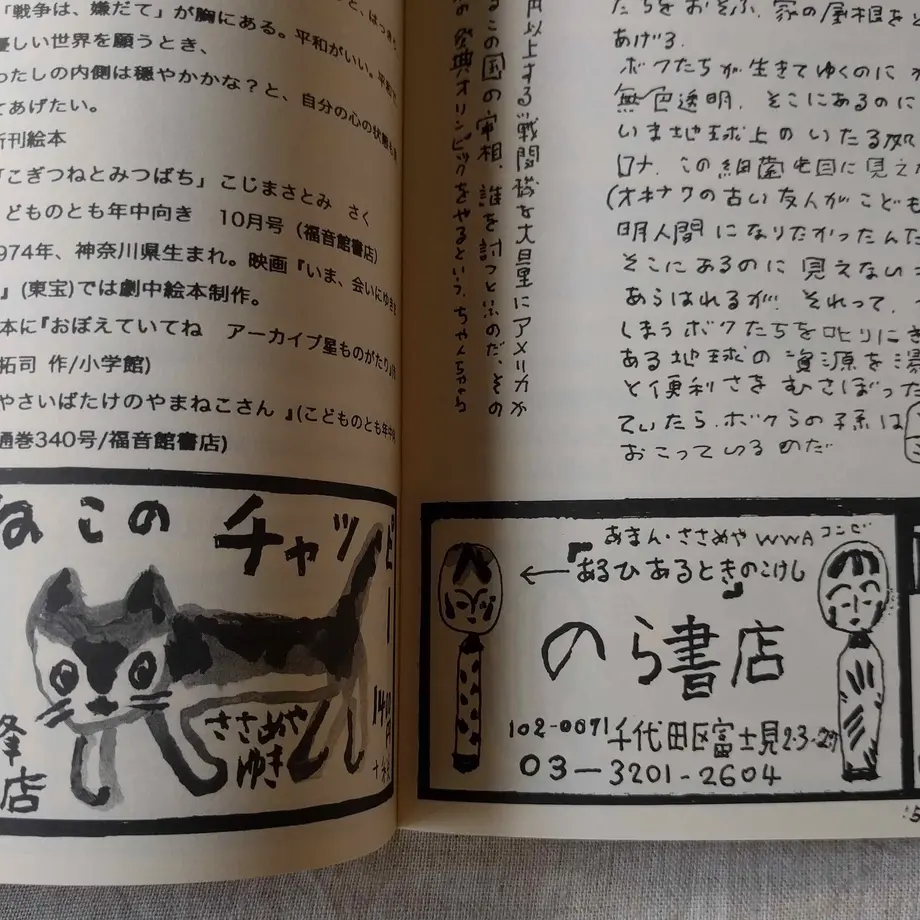 「戦争は、嫌だて」が胸にある。平和がいい。
優しい世界を願うとき、
わたしの内側は穏やかかな?と、自分の心の状態も
てあげたい。
新刊絵本
「こぎつねとみつばち」こじまさとみ さく
どものとも年中向き 10月号 (福音館書店)
974年、神奈川県生まれ。映画『いま、会いにゆきま
』(東宝)では劇中絵本制作。
本に『おぼえていてね アーカイブ星ものがたり』
拓司 作/小学館)
やさいばたけのやまねこさん 』(こどものとも年中
通巻340号/福音館書店)
ねこの チャッピー
1400円
ささめや
ゆき
店
円以上する戦闘機を大量にアメリカが
るこの国の宰相、誰を討つといふのだ、その
の祭典オリンピックをやるという、ちゃんちゃら
たちをおそふ、家の屋根をと
あげる、
ボクたちが生きてゆくのに
無色透明、そこにあるのに
いま地球上のいたる処
ロナ、この細菌も目に見え
(オキナワの古い友人がこども
明人間になりたかったんだ
そこにあるのに見えない
あらはれるが、それって、
しまうボクたちを叱りにき
ある地球の資源を
と便利さをむさぼった
ていたら、ボクらの子孫は
おこっているのだ
あまん・ささめや WWA コンビ
←『あるひあるときのこけし』
のら書店
102-0071 千代田区富士見2-3-27
03-3201-2604